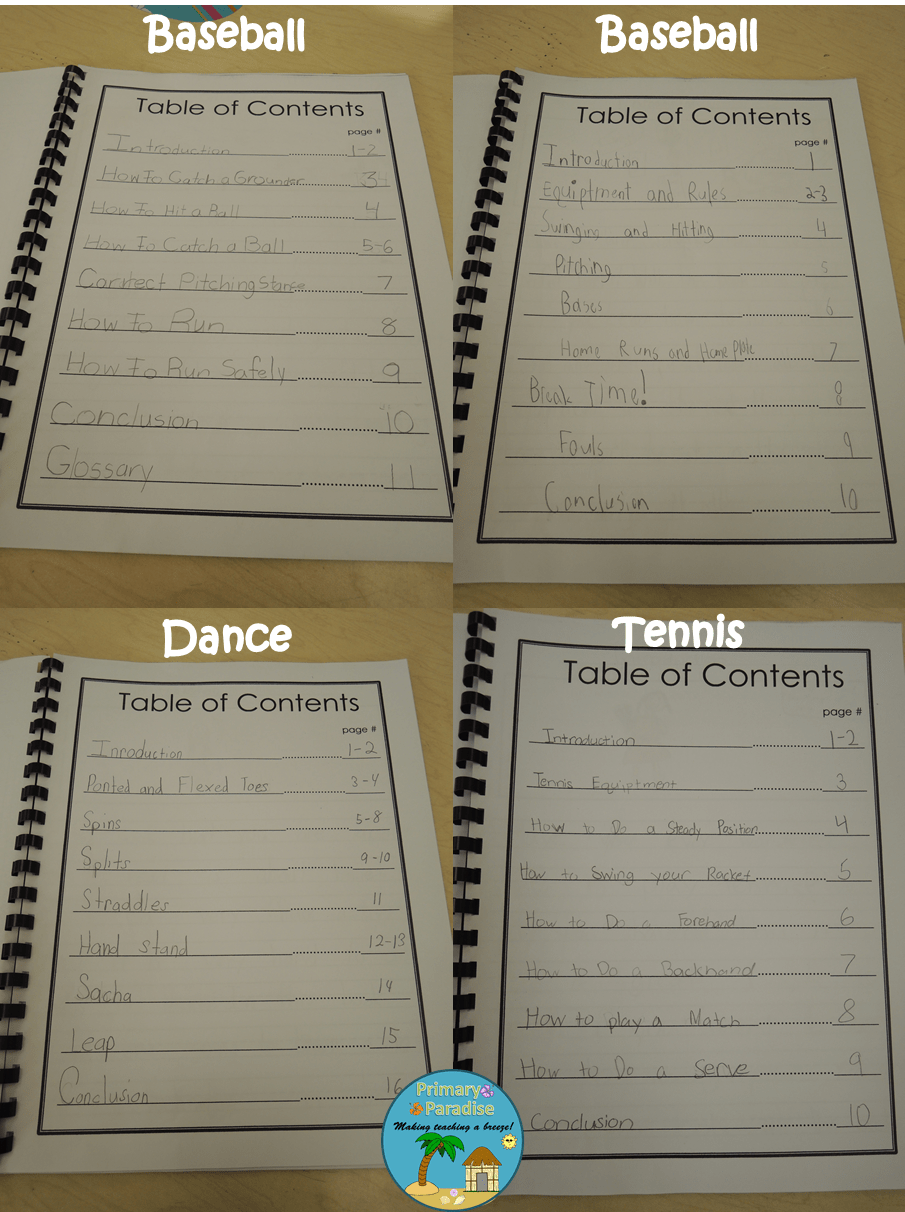 Baseball
Table of Contents
page #
Introduction 1-2
How To Catch a Grounder 3
How To Hit a Ball 4
How To Catch a Ball 5-6
Corrrect Pitching Stance 7
How To Run 8
How To Run Safely 9
Conclusion 10
Glossary 11
Baseball
Table of Contents
page #
Introduction 1
Equiptment and Rules 2-3
Swinging and Hitting 4
Pitching 5
Bases 6
Home Runs and Home Plate 7
Break Time! 8
Fouls 9
Conclusion 10
Dance
Table of Contents
page #
Inroduction 1-2
Ponted and Flexed Toes 3-4
Spins 5-8
Splits 9-10
Straddles 11
Hand stand 12-13
Sacha 14
Leap 15
Conclusion 16
Tennis
Table of Contents
page #
Introduction 1-2
Tennis Equiptment 3
How to Do a Steady Position 4
How to Swing your Racket 5
How to Do a Forehand 6
How to Do a Backhand 7
How to play a Match 8
How to Do a Serve 9
Conclusion 10
Primary
Paradise
Making teaching a breeze!